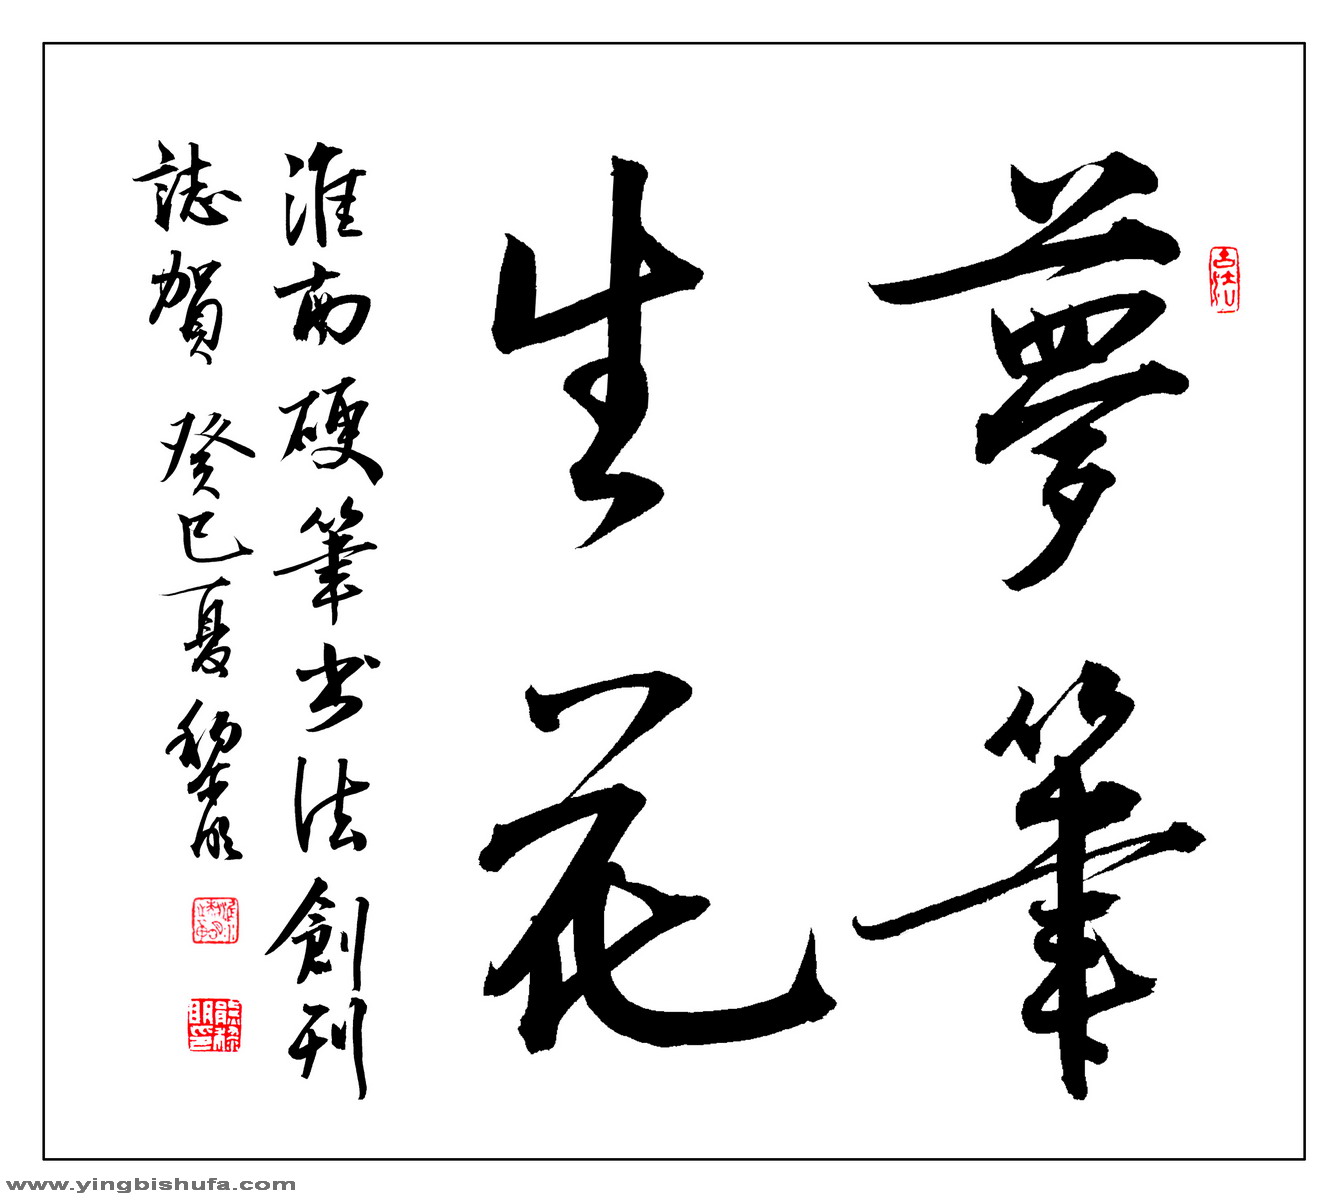 夢筆
生花
淮南硬筆书法創刊
誌賀 癸巳夏 黎明
www.yingbishufa.com